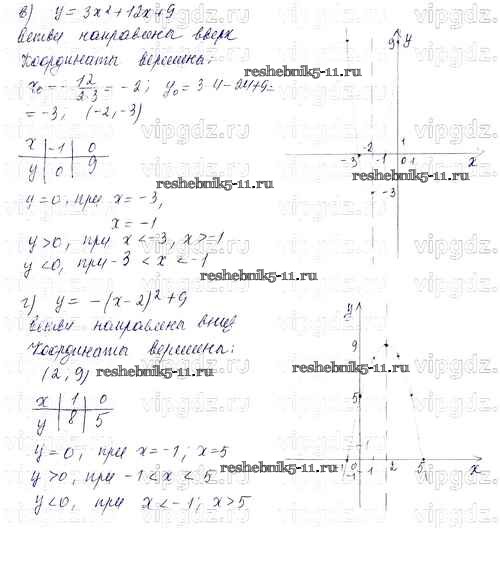 в) y = 3x² + 12x + 9
Ветви направлены вверх
Координаты вершины:
x₀ = - 12/2·3 = -2; y₀ = 3·4 - 24 + 9 =
= -3; (-2, -3)
x | -1 | 0
y | 0 | 9
y = 0, при x = -3,
x = -1
y > 0, при x < -3, x > -1
y < 0, при -3 < x < -1
г) y = -(x - 2)² + 9
Ветви направлены вниз
Координаты вершины:
(2, 9)
x | 1 | 0
y | 8 | 5
y = 0, при x = -1; x = 5
y > 0, при -1 < x < 5
y < 0, при x < -1; x > 5
9 y
-2 1
-3 -1 0 1 x
-3
y
9
5
1
-1 0 1 2 5 x
-1
reshebnik5-11.ru
reshebnik5-11.ru
reshebnik5-11.ru
reshebnik5-11.ru
reshebnik5-11.ru
reshebnik5-11.ru
reshebnik5-11.ru
vipgdz.ru